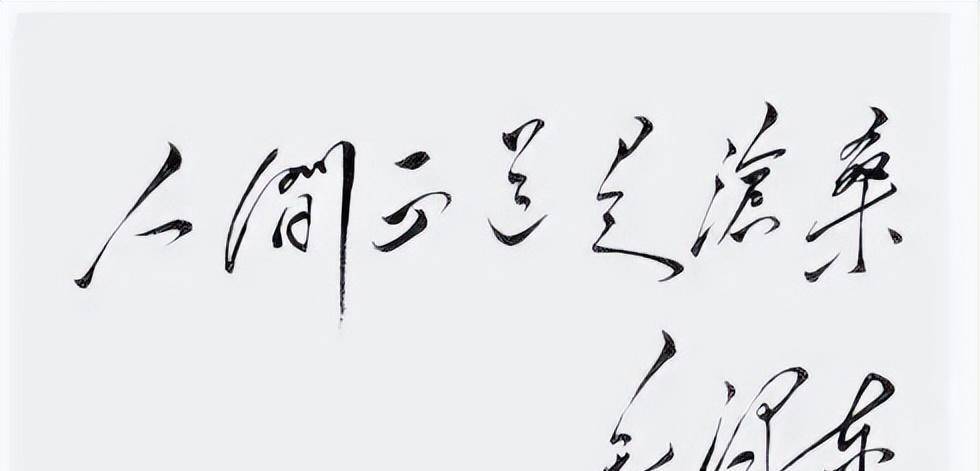 人間正道是滄桑
毛澤东